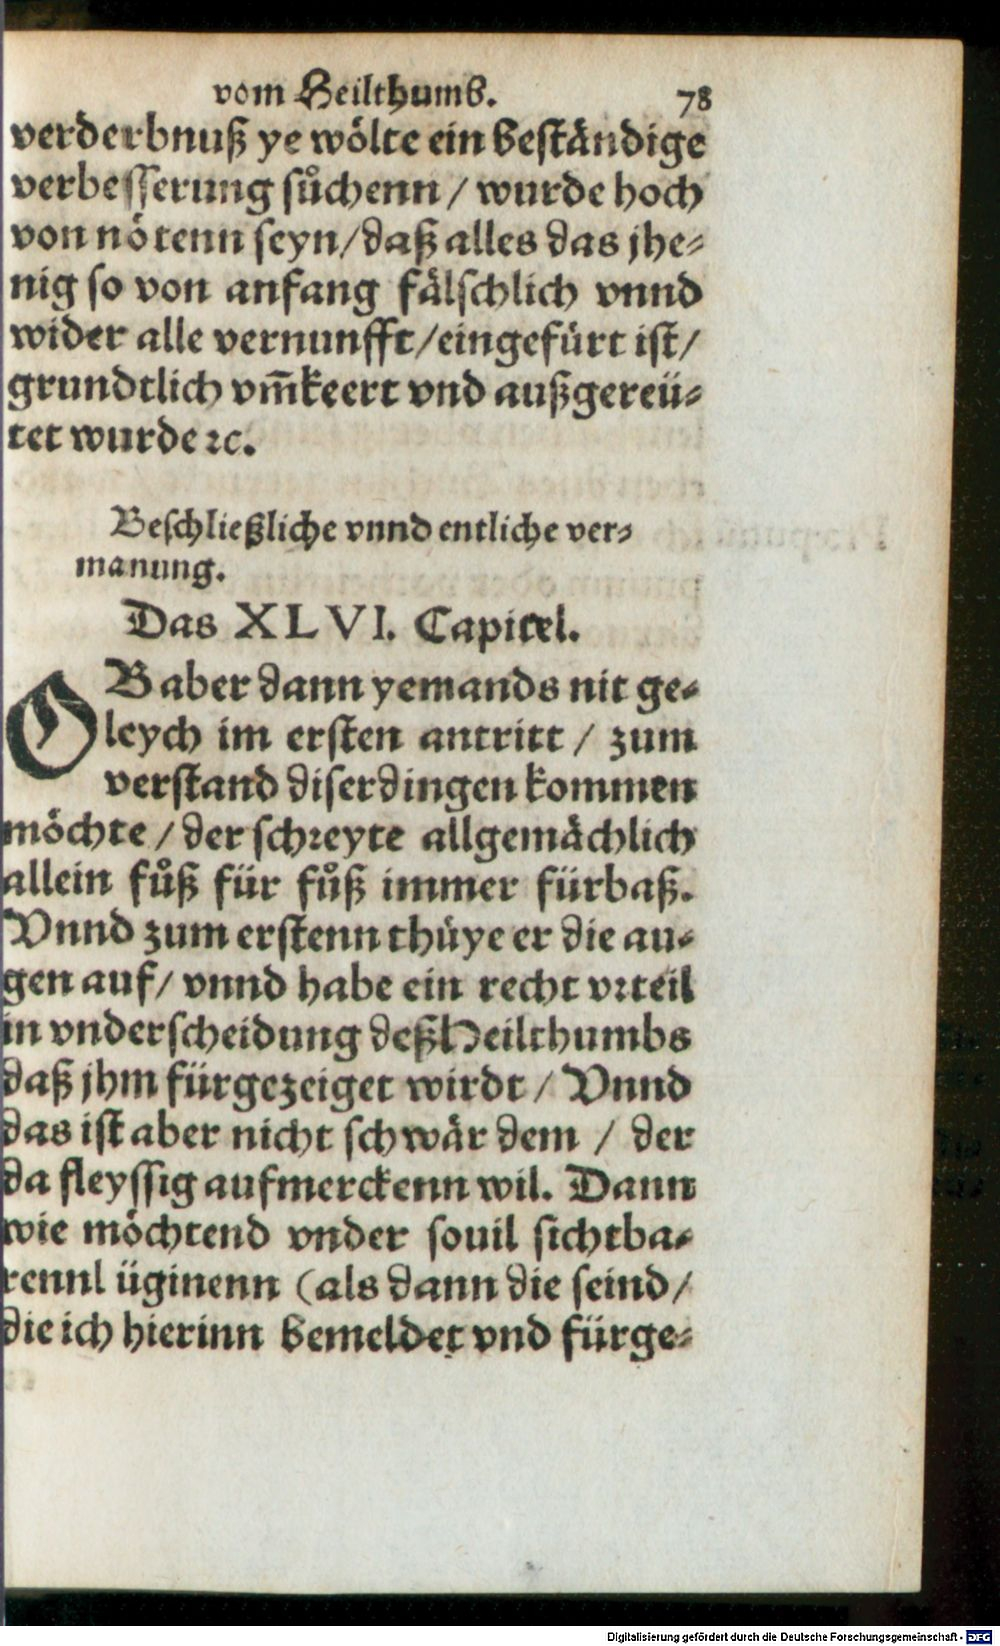 vom Heilthumb. 78
verderbnuß ye wölte ein beständige
verbesserung sůchenn / wurde hoch
von nötenn seyn/daß alles das jhe⸗
nig so von anfang fälschlich vnnd
wider alle vernunfft/eingefürt ist/
grundtlich vm̃keert vnd außgereü⸗
tet wurde ꝛc.
Beschließliche vnnd entliche ver⸗
manung.
Das XLVI. Capitel.
OB aber dann yemands nit ge⸗
leych im ersten antritt / zum
verstand diser dingen kommen
möchte / der schreyte allgemächlich
allein fůß für fůß immer fürbaß.
Vnnd zum erstenn thüye er die au⸗
gen auf/ vnnd habe ein recht vrteil
in vnderscheidung deß Heilthumbs
daß jhm fürgezeiget wirdt / Vnnd
das ist aber nicht schwär dem / der
da fleyssig aufmerckenn wil. Dann
wie möchtend vnder souil sichtba⸗
rennl üginenn (als dann die seind/
die ich hierinn bemeldet vnd fürge⸗
Digitalisierung gefördert durch die Deutsche Forschungsgemeinschaft - DFG